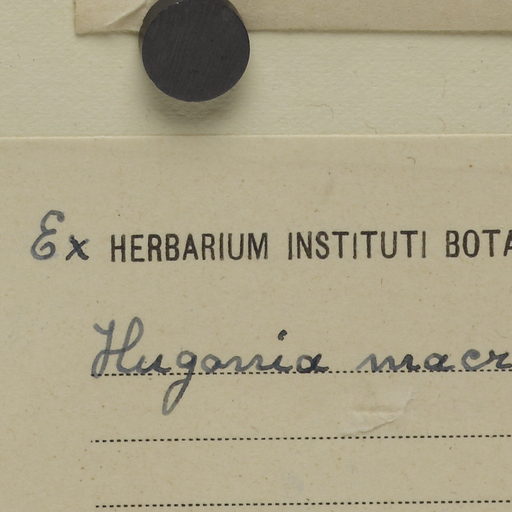 Ex HERBARIUM INSTITUTI BOTA
Hugonia macr